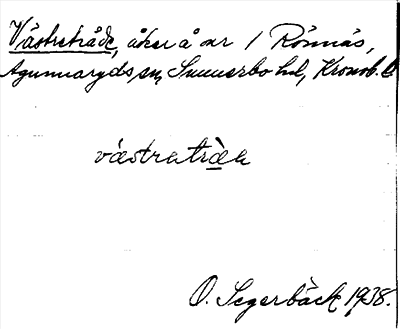 Västretråde, åker å nr 1 Rönnäs,
Agunnaryds sn, Sunnerbo hd, Kronob. l.
västratrå̱de
O. Segerbäck 1938.